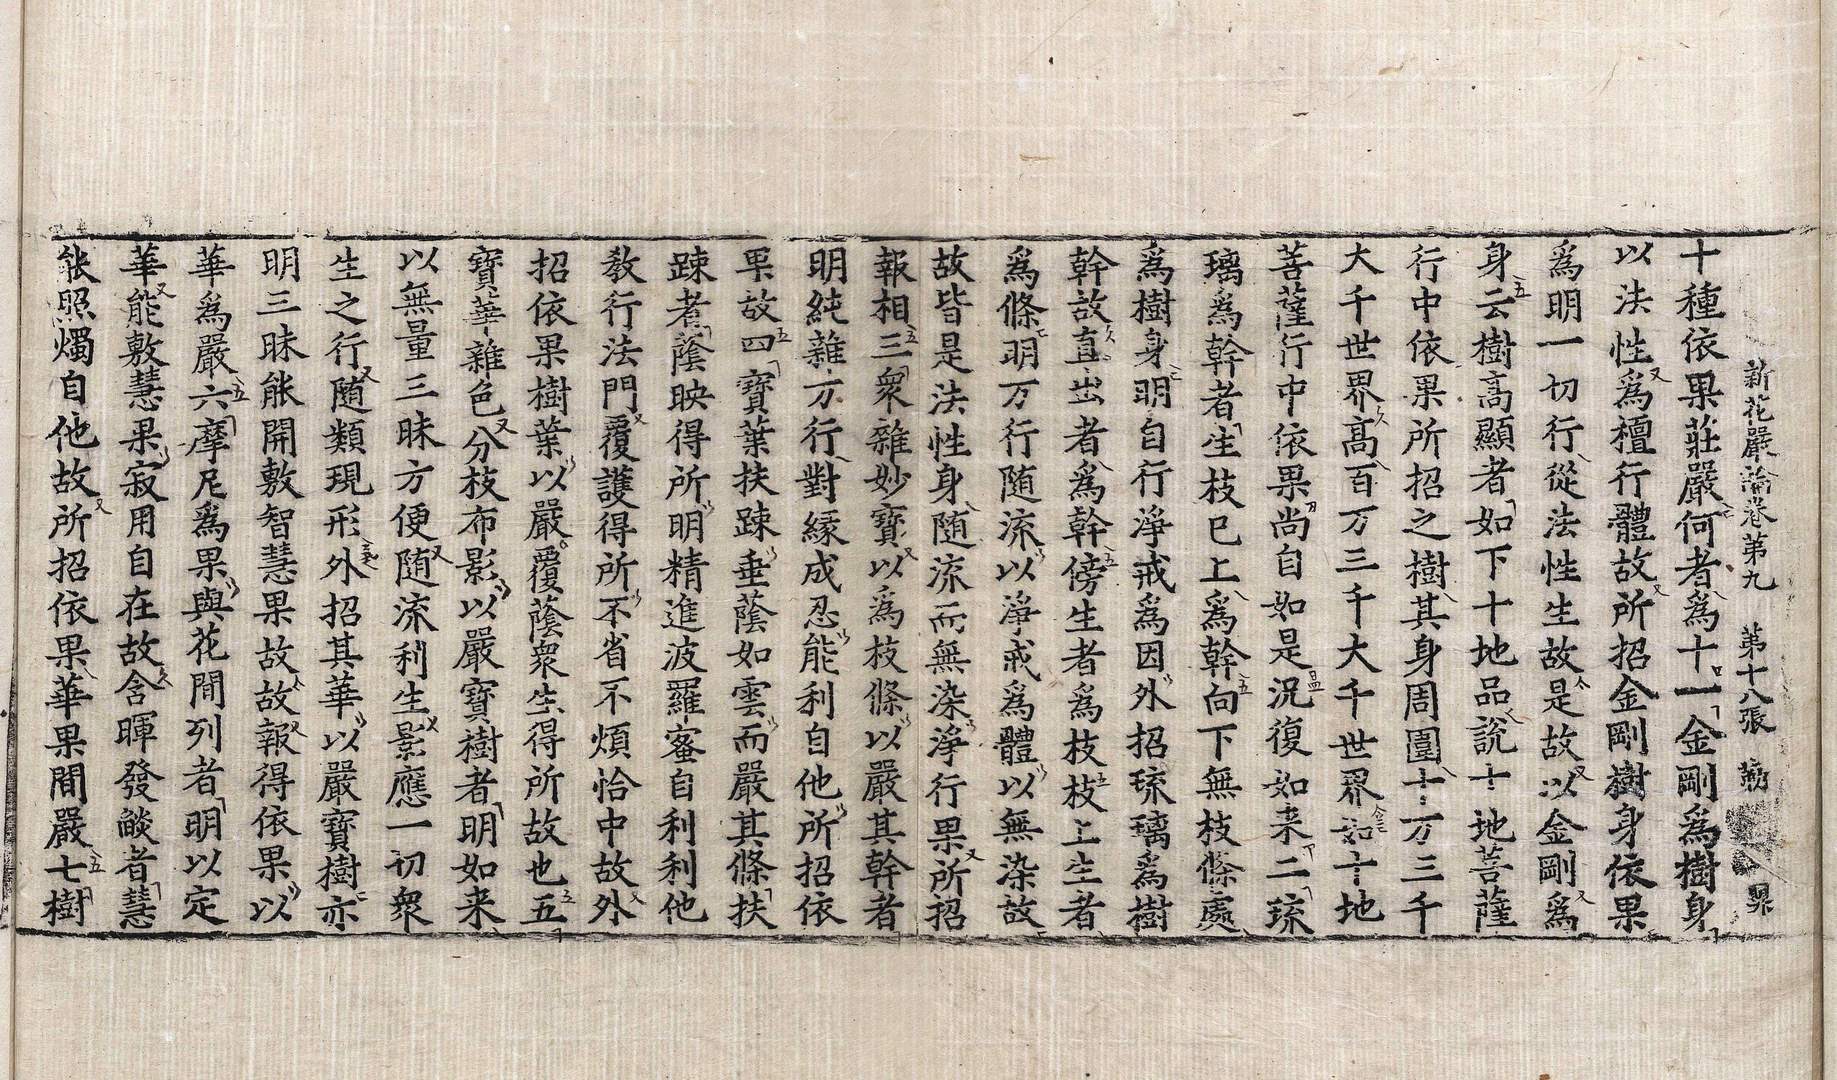 新花嚴論卷第九　第十八張
十種依果莊嚴何者爲十一金剛爲樹身
以法性爲檀行體故所招金剛樹身依果
爲明一切行從法性生故是故以金剛爲
身云樹高顯者如下十地品說十地菩薩
行中依果所招之樹其身周圍十万三千
大千世界高百万三千大千世界如十地
菩薩行中依果尚自如是況復如来二琉
璃爲幹者生枝已上爲幹向下無枝條處
爲樹身明自行淨戒爲因外招琉璃爲樹
幹故直出者爲幹傍生者爲枝枝上生者
爲條明万行随流以淨戒爲體以無染故
故皆是法性身随流而無染淨行果所招
報相三衆雜妙寶以爲枝條以嚴其幹者
明純雜万行對緣成忍能利自他所招依
果故四寶葉扶踈垂蔭如雲而嚴其條扶
踈者蔭映得所明精進波羅蜜自利利他
教行法門覆護得所不省不煩恰中故外
招依果樹葉以嚴覆蔭衆生得所故也五
寶華雜色分枝布影以嚴寶樹者明如来
以無量三昧方便随流利生影應一切衆
生之行随類現形外招其華以嚴寶樹亦
明三昧能開敷智慧果故故報得依果以
華爲嚴六摩尼爲果與花間列者明以定
華能敷慧果寂用自在故含暉發燄者慧
能照燭自他故所招依果華果間嚴七樹